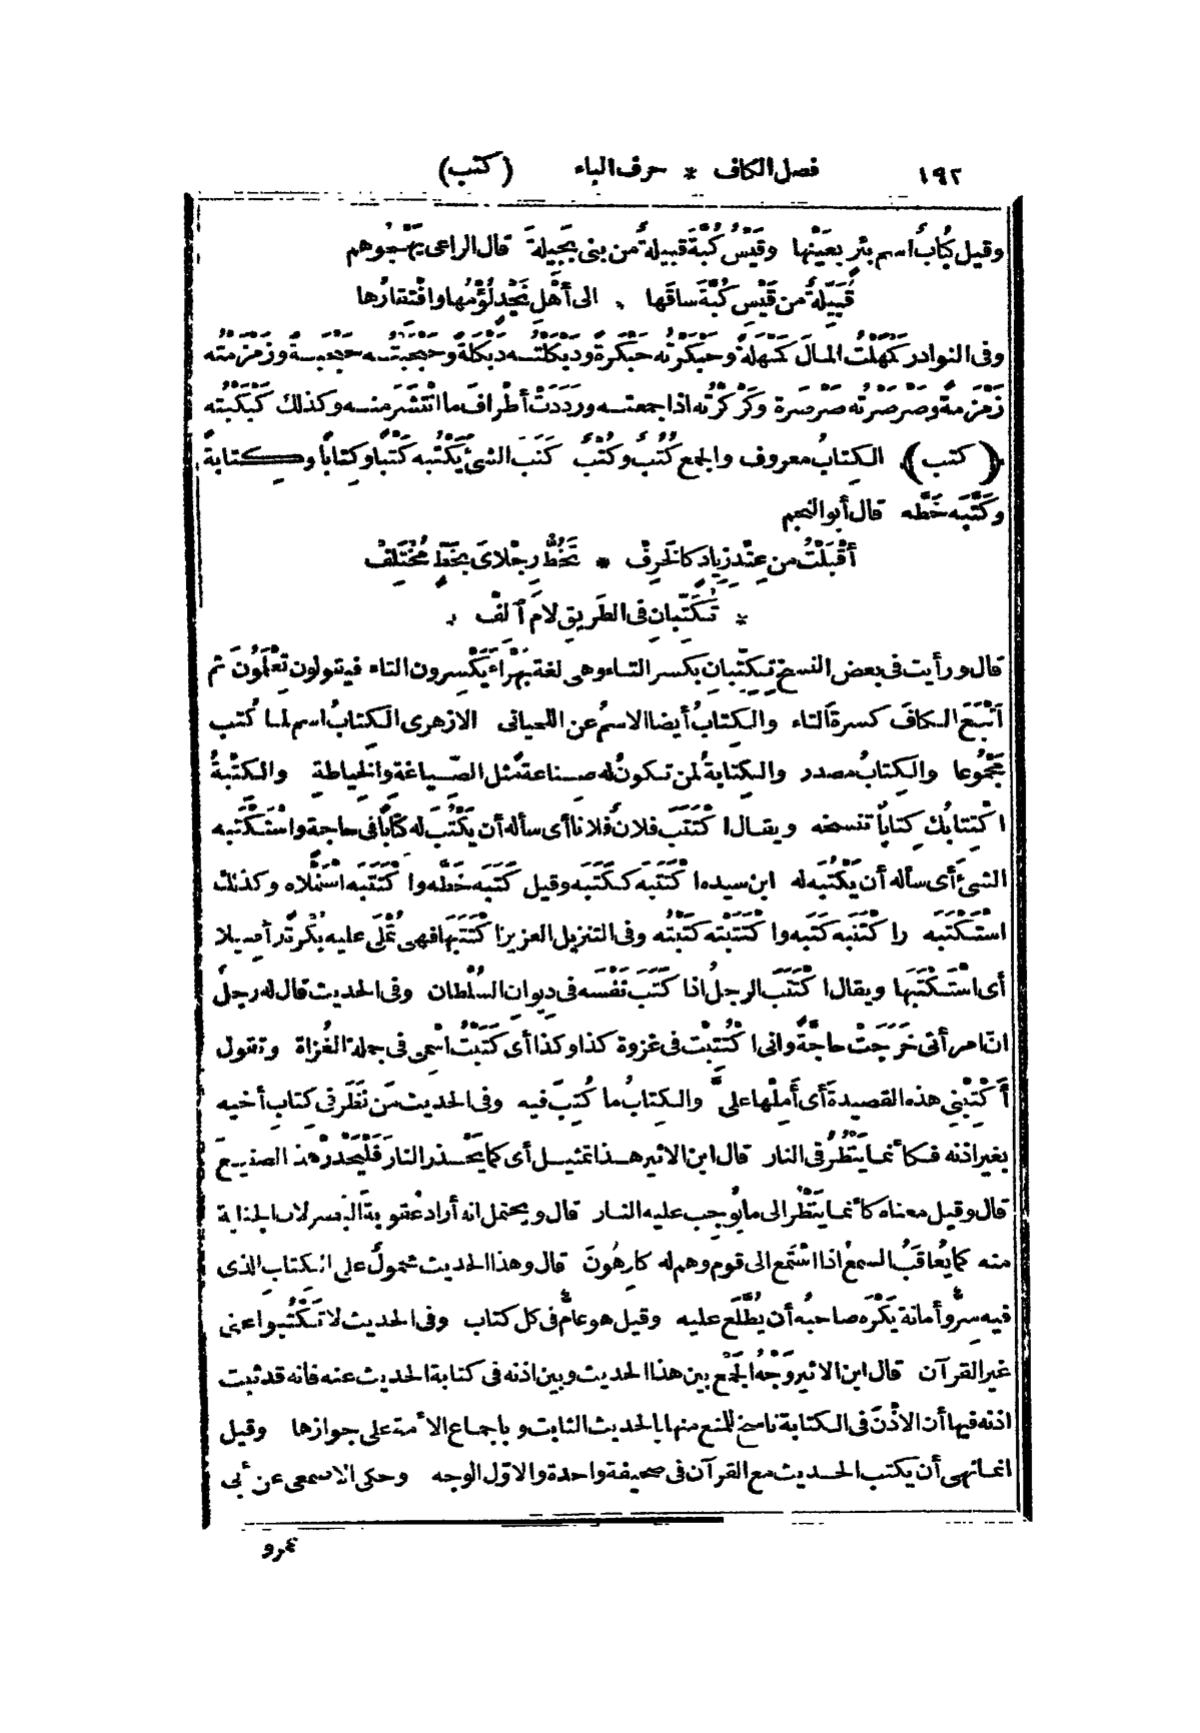 ١٩٢ فصل الكاف * حرف الباء (كتب)
وقيل كُبابُ اسم بئرٍ بعَيْنها وقَيْسُ كُبَّةَ قبيلةٌ من بنى بَجِيلةَ قال الراعى يَهْجُوهم
قُبَيِّلةٌ من قَيْسِ كُبَّةَ ساقَها * الى أَهْلِ نَجْدٍ لُؤْمُها وافْتقارُها
وفى النوادر كَمْهَلْتُ المالَ كَمْهَلةً وحَبْكَرْتُه حَبْكَرةً ودَبْكَلْتُه دَبْكَلةً وحَبْحَبْتُه حَبْحَبةً وزَمْزَمْتُه
زَمْزَمةً وصَرْصَرْتُه صَرْصَرةً وكَرْكَرْتُه اذا جمعته ورَدَدْتَ أَطْرافَ ما انْتَشَرَ منه وكذلك كَبْكَبْتُه
(كتب) الكِتابُ معروف والجمع كُتُبٌ وكُتْبٌ كَتَبَ الشئَ يَكْتُبه كَتْبًا وكِتابًا وكِتابةً
وكَتَّبَه خَطَّه قال أبو النجم
أَقْبَلْتُ من عِنْدِ زيادٍ كالخَرِفْ * تَخُطُّ رِجْلاىَ بخَطٍّ مُخْتَلِفْ
* تُكَتِّبانِ فى الطَّريقِ لامَ آلِفْ *
قال ورأيت فى بعض النسخ تِكِتِّبانِ بكسر التاء وهى لغة بَهْراءَ يَكْسِرون التاء فيقولون تِعْلَمُونَ ثم
أَتْبَعَ الكافَ كسرةَ التاء والكِتابُ أيضا الاسمُ عن اللحيانى الازهرى الكِتابُ اسم لما كُتب
مَجْمُوعا والكِتابُ مصدر والكِتابةُ لمن تكونُ له صناعةً مثل الصِّياغةِ والخِياطةِ والكِتْبةُ
اكْتِتابُك كِتابًا تنسخه ويقال اكْتَتَبَ فلانٌ فلانا أى سأَله أن يَكْتُبَ له كتابًا فى حاجة واسْتَكْتَبه
الشئَ أى سأله أن يَكْتُبَه له ابن سيده اكْتَتَبَه ككَتَبَه وقيل كَتَبَه خَطَّه واكْتَتَبَه اسْتَمْلاه وكذلك
اسْتَكْتَبَه واكْتَتَبه كَتَبَه واكْتَتَبْته كَتَبْتُه وفى التنزيل العزيز اكْتَتَبَها فهى تُمْلَى عليه بُكْرةً وأَصِيلا
أى اسْتَكْتَبَها ويقال اكْتَتَبَ الرجلُ اذا كَتَبَ نَفْسَه فى دِيوانِ السُّلْطان وفى الحديث قال له رجلٌ
انّ امرأتى خَرَجَتْ حاجَّةً وانى اكْتُتِبْت فى غزوة كذا وكذا أى كَتَبْتُ اسْمِى فى جملة الغُزاة وتقول
أَكْتِبْنِى هذه القصيدةَ أى أَمْلِها علىَّ والكِتابُ ما كُتِبَ فيه وفى الحديث مَن نَظَرَ فى كِتابِ أخيه
بغير اذنه فكأنما يَنْظُرُ فى النار قال ابن الاثير هذا تمثيل أى كما يَحْذَر النارَ فَلْيَحْذَرْ هذا الصنيعَ
قال وقيل معناه كأنما يَنْظُر الى ما يُوجِب عليه النار قال ويحتمل انه أراد عُقوبةَ البَصر لان الجناية
منه كما يُعاقَبُ السمعُ اذا اسْتَمع الى قوم وهم له كارِهُونَ قال وهذا الحديث محمولٌ على الكِتابِ الذى
فيه سِرٌّ وأمانة يَكْرَه صاحبُه أن يُطَّلَع عليه وقيل هو عامٌّ فى كل كتاب وفى الحديث لا تَكْتُبوا عنى
غير القرآن قال ابن الاثير وَجْهُ الجَمْعِ بين هذا الحديث وبين اذنه فى كتابة الحديث عنه فانه قد ثبت
اذنه فيها أن الاذْنَ فى الكتابة ناسخ للمنع منها بالحديث الثابت وباجماع الأمة على جوازها وقيل
انما نهى أن يكتب الحديث مع القرآن فى صحيفة واحدة والاوّل الوجه وحكى الاصمعى عن أبى
عمرو